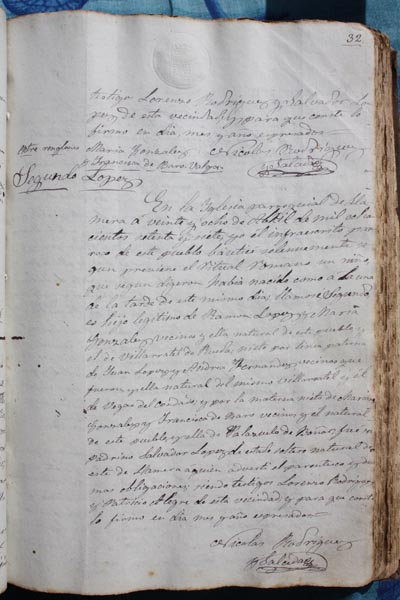 32
testigos Lorenzo Rodriguez y Salvador Lo
pez de esta vecindad y para que conste lo
firmo en dia mes y año expresados
Maria Gonzalez Nicolas Rodriguez
y Francisca de Baro y Salcedo
Segundo Lopez
En la Iglesia parroquial de Lla
mera á veinte y ocho de Abril de mil ocho
cientos setenta y siete, yo el infrascrito pár
roco de este pueblo bauticé solemnemente se
gun previene el Ritual Romano un niño
que segun dijeron habia nacido como á la una
de la tarde de este mismo dia, llamele Segundo
es hijo legitimo de Ramon Lopez y Maria
Gonzalez vecinos y ella natural de este pueblo y
el de Villarratel de Rueda, nieto por linea paterna
de Juan Lopez y Andrea Fernandez vecinos que
fueron y ella natural del mismo Villarratel y el
de Vegas del condado, y por la materna nieto de
Gonzalez y Francisca de Baro vecinos y el natural
de este pueblo y ella de Palazuelo de Boñar, fué su
padrino Salvador Lopez de estado soltero natural de
este de Llamera á quien advertí el parentesco y de
mas obligaciones, siendo testigos Lorenzo Rodriguez
y Patricio Alegre de esta vecindad y para que conste
lo firmo en dia mes y año expresados
Nicolas Rodriguez
y Salcedo